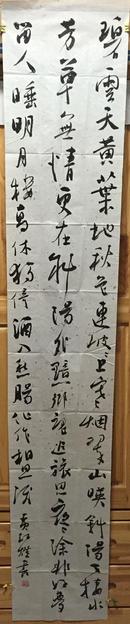 碧雲天黄葉地秋色連波〻上寒烟翠山映斜陽天接水
芳草無情更在斜陽外黯鄉魂追旅思夜〻除非好夢
留人睡明月樓高休獨倚酒入愁腸化作相思淚